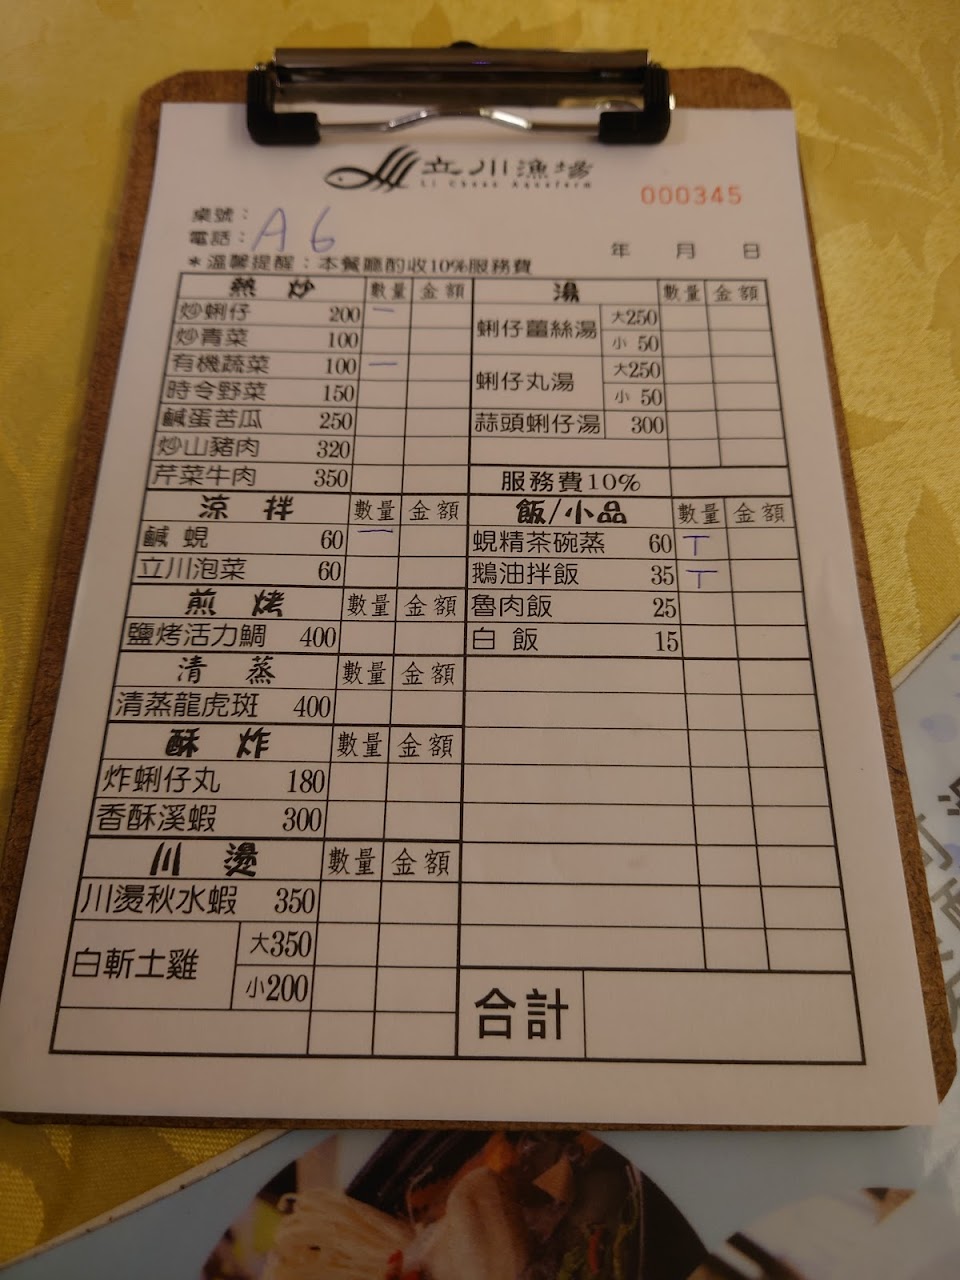 立川漁場
Li Chuan Aquafarm
000345
桌號：
電話：A6
年 月 日
＊溫馨提醒：本餐廳酌收10%服務費
熱 炒 數量 金額
炒蜊仔 200 一
炒青菜 100
有機蔬菜 100 一
時令野菜 150
鹹蛋苦瓜 250
炒山豬肉 320
芹菜牛肉 350
涼 拌 數量 金額
鹹 蜆 60 一
立川泡菜 60
煎 烤 數量 金額
鹽烤活力鯛 400
清 蒸 數量 金額
清蒸龍虎斑 400
酥 炸 數量 金額
炸蜊仔丸 180
香酥溪蝦 300
川 燙 數量 金額
川燙秋水蝦 350
白斬土雞 大350
小200
湯 數量 金額
蜊仔薑絲湯 大250
小 50
蜊仔丸湯 大250
小 50
蒜頭蜊仔湯 300
服務費10%
飯/小品 數量 金額
蜆精茶碗蒸 60 T
鵝油拌飯 35 T
魯肉飯 25
白 飯 15
合計